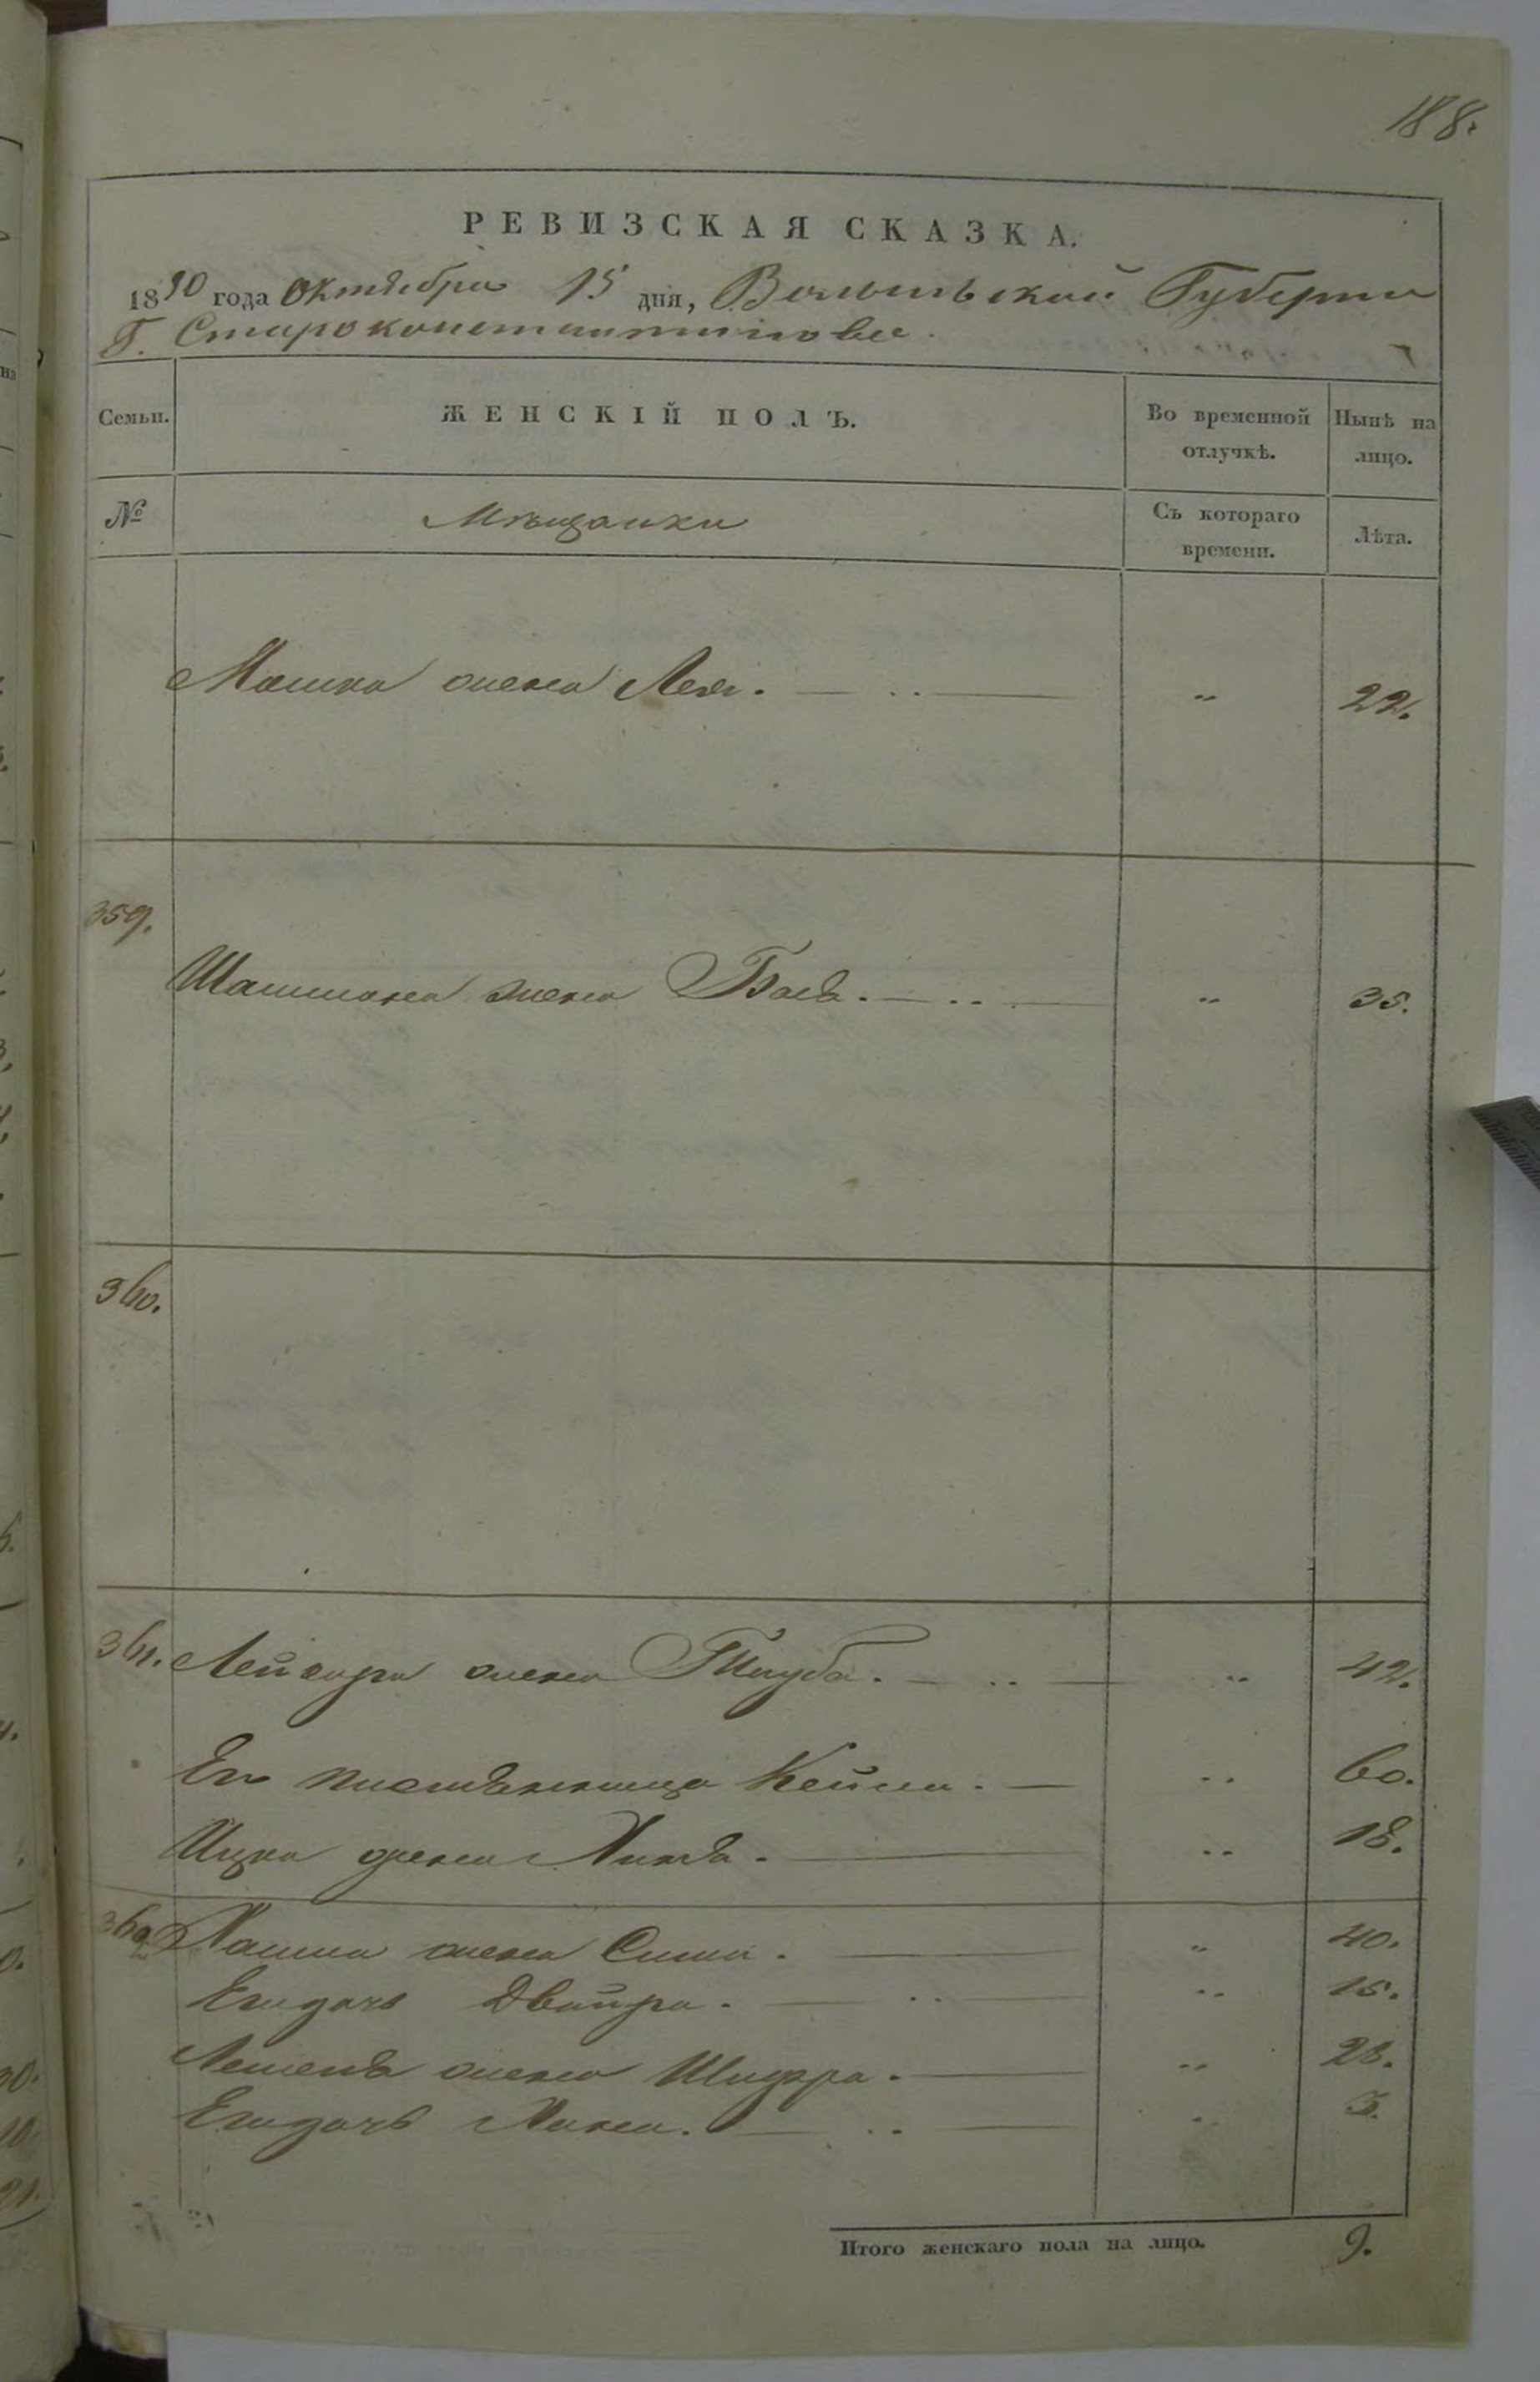 188.
РЕВИЗСКАЯ СКАЗКА.
1850 года Октября 15 дня, Волынской Губернии
Г. Староконстантинова.
Семьи. ЖЕНСКІЙ ПОЛЪ. Во временной отлучкѣ. Нынѣ на лицо.
№ Мѣщанки Съ котораго времени. Лѣта.
Мошка жена Лея. — .. — „ 22.
359.
жена Бася. — .. — „ 35.
360.
361. Лейзора жена Тауба. — .. — „ 42.
Кейла. — „ 60.
Ицка жена Хися. — „ 18.
362. жена Сима. — „ 40.
Его дочь Двойра. — .. — „ 15.
жена Шифра. — „ 28.
Его дочь Хана. — .. — „ 3.
Итого женскаго пола на лицо. 9.